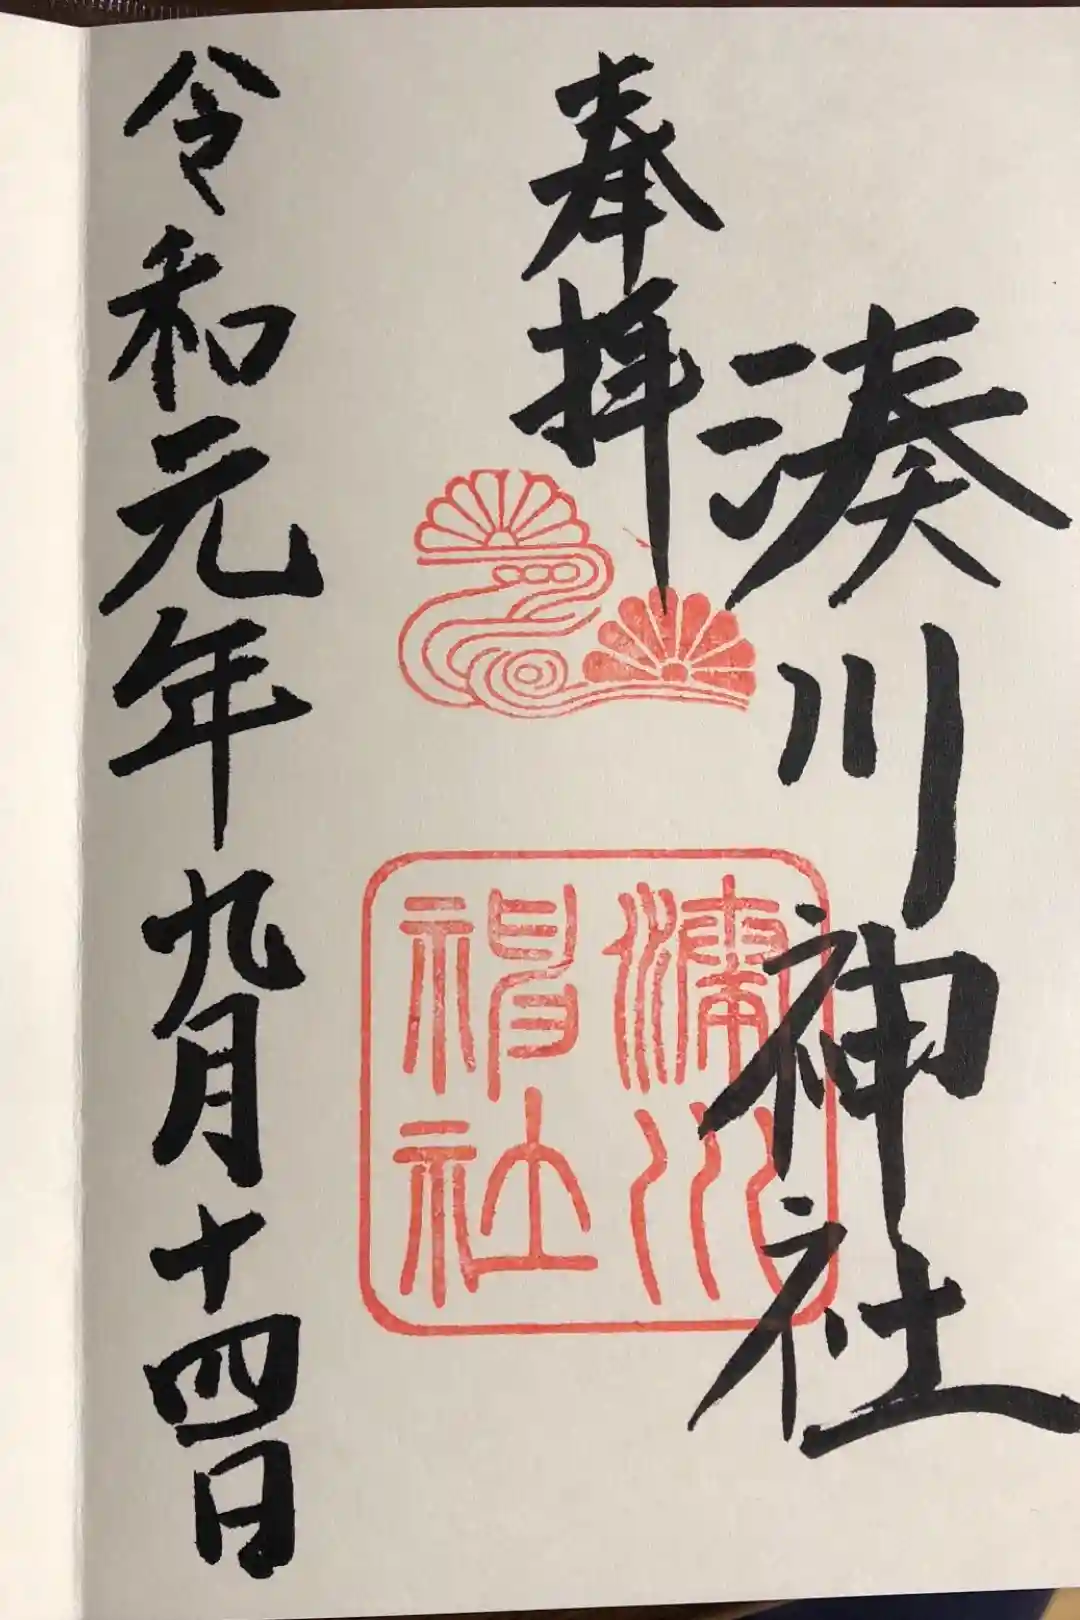 奉拝
湊川神社
湊川
神社
令和元年九月十四日